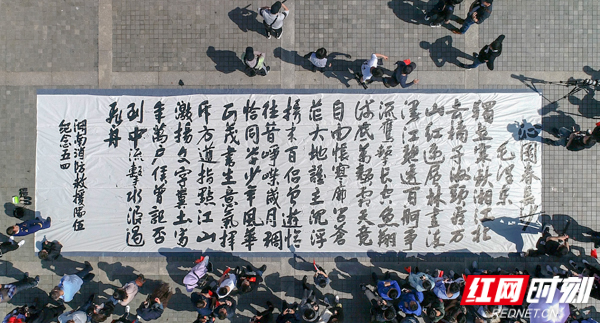 沁园春长沙
毛泽东
独立寒秋湘江北
去橘子洲头看万
山红遍层林尽染
漫江碧透百舸争
流鹰击长空鱼翔
浅底万类霜天竞
自由怅寥廓问苍
茫大地谁主沉浮
携来百侣曾游忆
往昔峥嵘岁月稠
恰同学少年风华
正茂书生意气挥
斥方遒指点江山
激扬文字粪土当
年万户侯曾记否
到中流击水浪遏
飞舟
湖南消防救援队伍
纪念五四
红网时刻
REDNET.CN